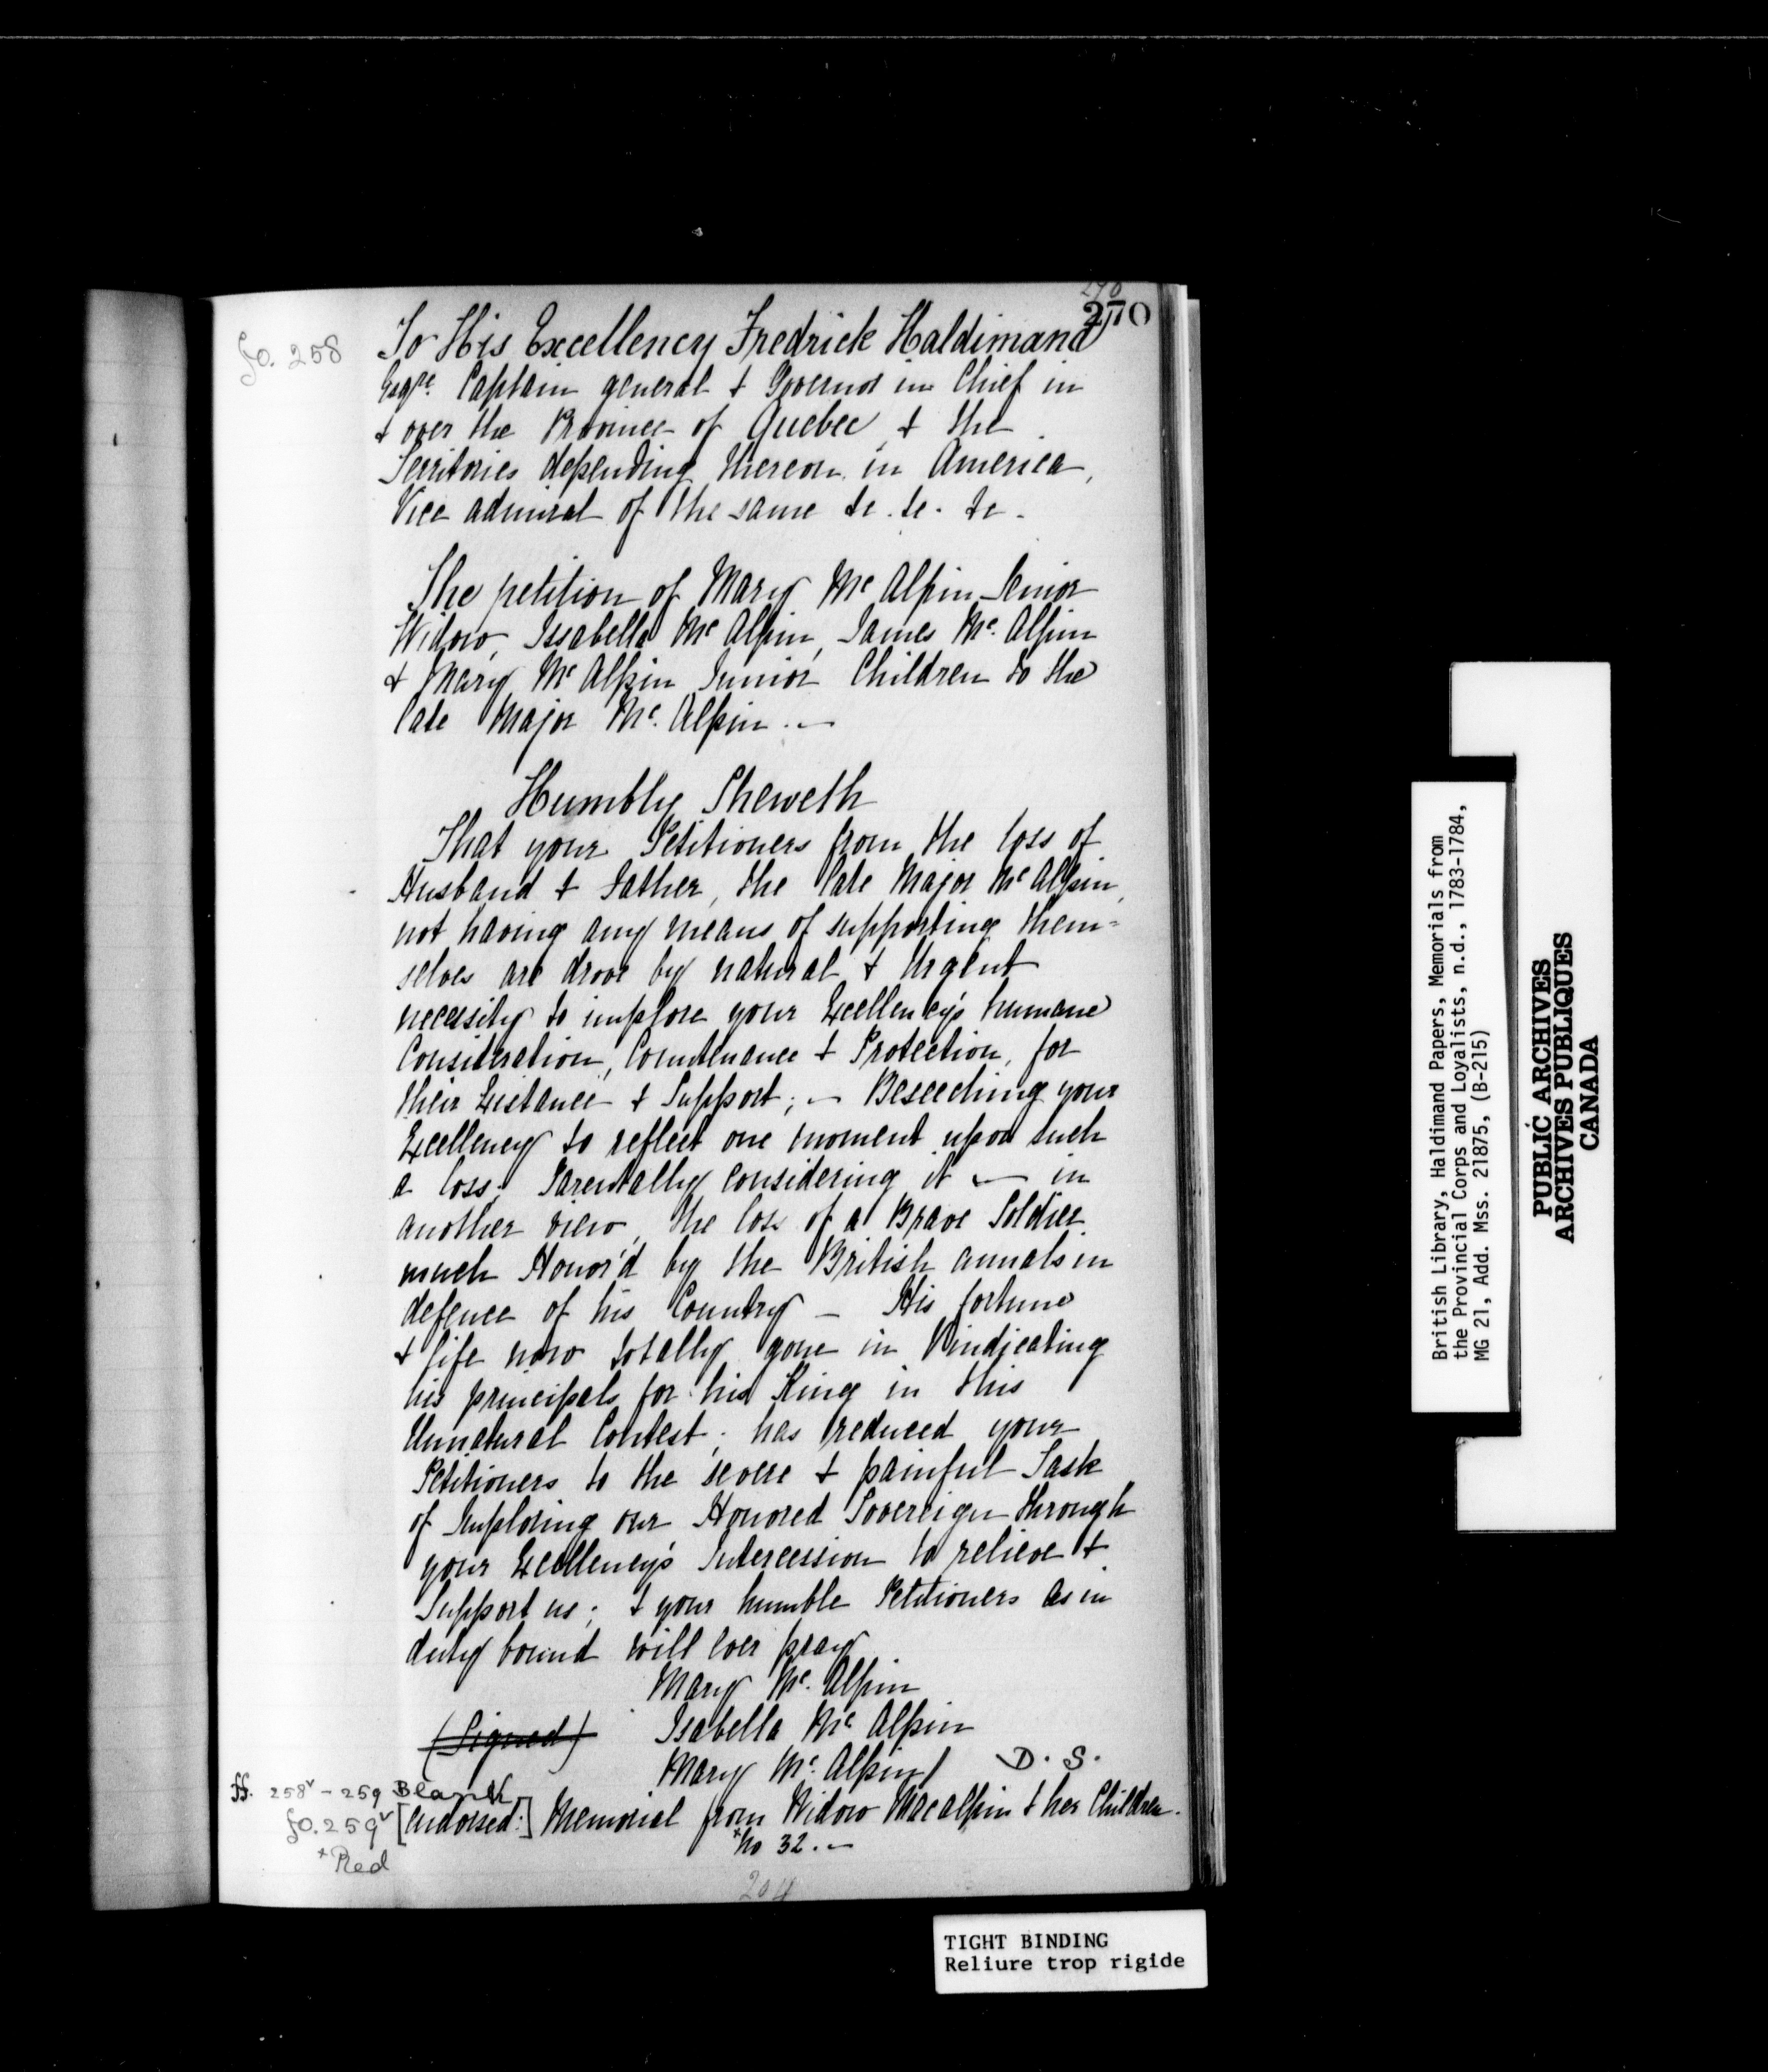 270
270
fo. 258
To His Excellency Fredrick Haldimand
Esqre. Captain general & Governor in Chief in
& over the Province of Quebec & the
Territories depending thereon in America,
Vice admiral of the same &c. &c. &c.
The petition of Mary Mc Alpin Senior
Widow, Issabella Mc Alpin, James Mc. Alpin
& Mary Mc Alpin Junior Children to the
late Major Mc. Alpin. —
Humbly Sheweth
That your Petitioners from the loss of
Husband & Father, the late Major Mc Alpin,
not having any means of supporting them-
selves are drove by natural & Urgent
necessity to implore your Excellency's humane
Consideration, Countenance & Protection, for
their Existance & Support; — Beseeching your
Excellency to reflect one moment upon such
a loss; Parentally considering it — in
another view, the loss of a Brave Soldier
much Honor'd by the British annals in
defence of his Country — His fortune
& life now totally gone in Vindicating
his principals for his King in this
Unnatural Contest; has reduced your
Petitioners to the severe & painful Task
of Imploring our Honored Sovereign through
your Excellency's Intercession to relieve &
Support us; & your humble Petitioners as in
duty bound will ever pray
Mary Mc. Alpin
(Signed) Isabella Mc Alpin
Mary Mc. Alpin D. S.
ff. 258v - 259 Blank
fo. 259v [Endorsed:] Memorial from Widow Macalpin & her Children.
+ No 32. —
+ Red
204
British Library, Haldimand Papers, Memorials from
the Provincial Corps and Loyalists, n.d., 1783-1784,
MG 21, Add. Mss. 21875, (B-215)
PUBLIC ARCHIVES
ARCHIVES PUBLIQUES
CANADA
TIGHT BINDING
Reliure trop rigide